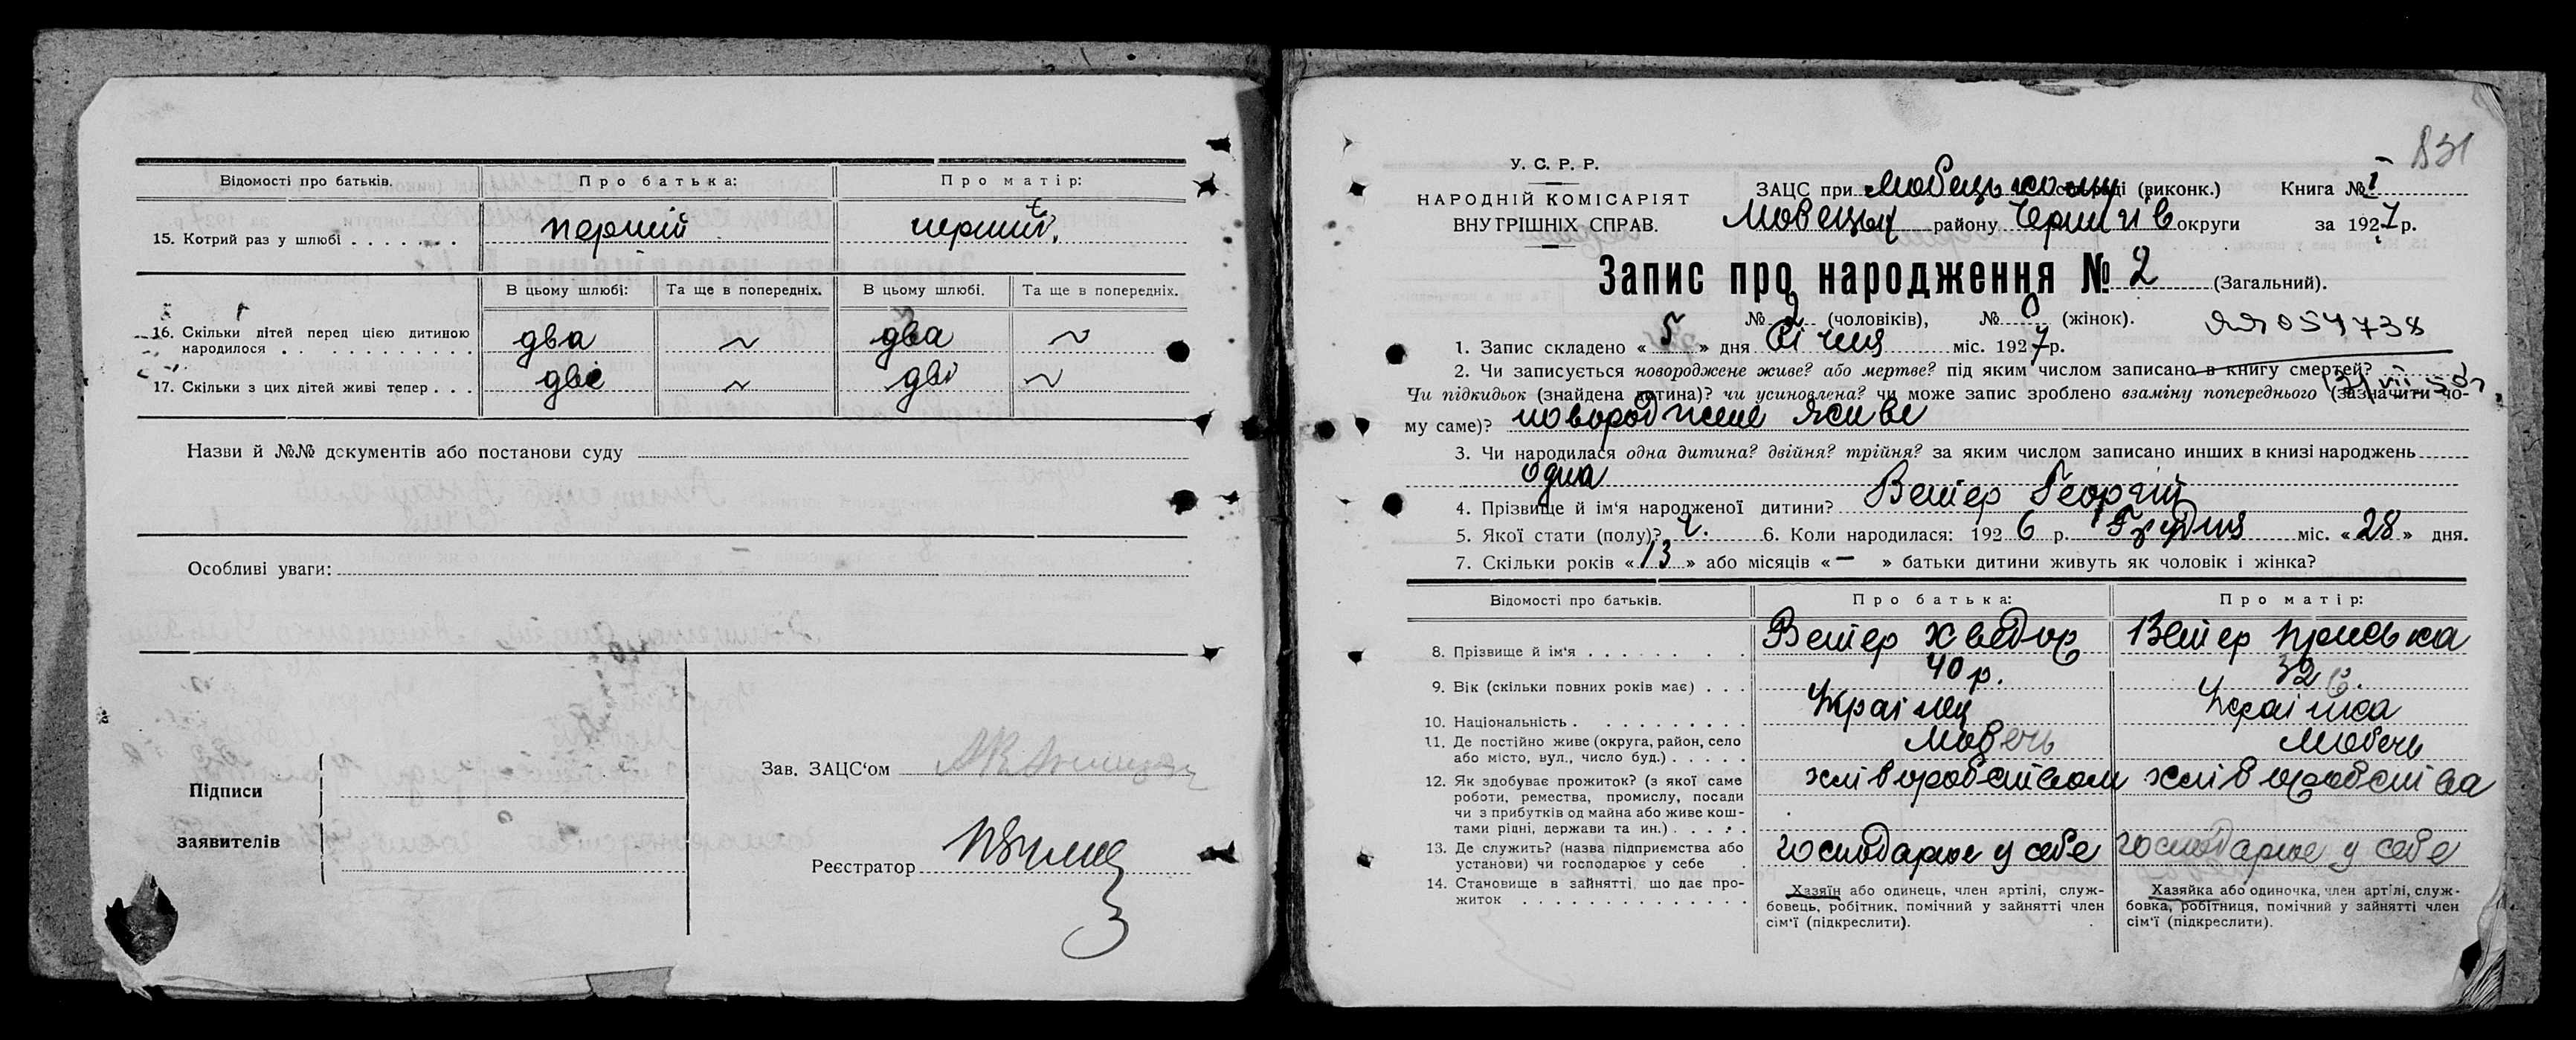 Відомості про батьків. Про батька: Про матір:
15. Котрий раз у шлюбі перший перший
В цьому шлюбі: Та ще в попередніх. В цьому шлюбі. Та ще в попередніх.
16. Скільки дітей перед цією дитиною народилося два ~ два ~
17. Скільки з цих дітей живі тепер двє ~ дві ~
Назви й №№ документів або постанови суду
Особливі уваги:
Підписи
заявителів
Зав. ЗАЦС'ом
Реєстратор
831
У. С. Р. Р.
НАРОДНІЙ КОМІСАРІЯТ
ВНУТРІШНІХ СПРАВ.
ЗАЦС при Любецькому сельраді (виконк.) Книга № I
Любецьк району Чернигів округи за 1927 р.
Запис про народження № 2 (Загальний).
№ 2 (чоловіків), № 0 (жінок).
ЯЯ 054738
1. Запис складено « 5 » дня Січня міс. 1927 р.
2. Чи записується новороджене живе? або мертве? під яким числом записано в книгу смертей?
Чи підкидьок (знайдена дитина)? чи усиновлена? чи може запис зроблено взаміну попереднього (зазначити чо-
му саме)? новороджене живе
3. Чи народилася одна дитина? двійня? трійня? за яким числом записано инших в книзі народжень
одна
4. Прізвище й ім'я народженої дитини? Ветер Георгій
5. Якої стати (полу)? ч. 6. Коли народилася: 1926 р. Грудня міс. « 28 » дня.
7. Скільки років « 13 » або місяців « — » батьки дитини живуть як чоловік і жінка?
Відомості про батьків. Про батька: Про матір:
8. Прізвище й ім'я Ветер Хведор Ветер Приська
9. Вік (скільки повних років має) 40 р. 32 р.
10. Національність Українец Українка
11. Де постійно живе (округа, район, село
або місто, вул., число буд.) Любечь Любечь
12. Як здобуває прожиток? (з якої саме хліборобством хліборобства
роботи, ремества, промислу, посади
чи з прибутків од майна або живе кош-
тами рідні, держави та ин.)
13. Де служить? (назва підприємства або
установи) чи господарює у себе господарює у себе господарює у себе
14. Становище в зайнятті, що дає про-
житок
Хазяїн або одинець, член артілі, служ-
бовець, робітник, помічний у зайнятті член
сім'ї (підкреслити).
Хазяйка або одиночка, член артілі, служ-
бовка, робітниця, помічний у зайнятті член
сім'ї (підкреслити).